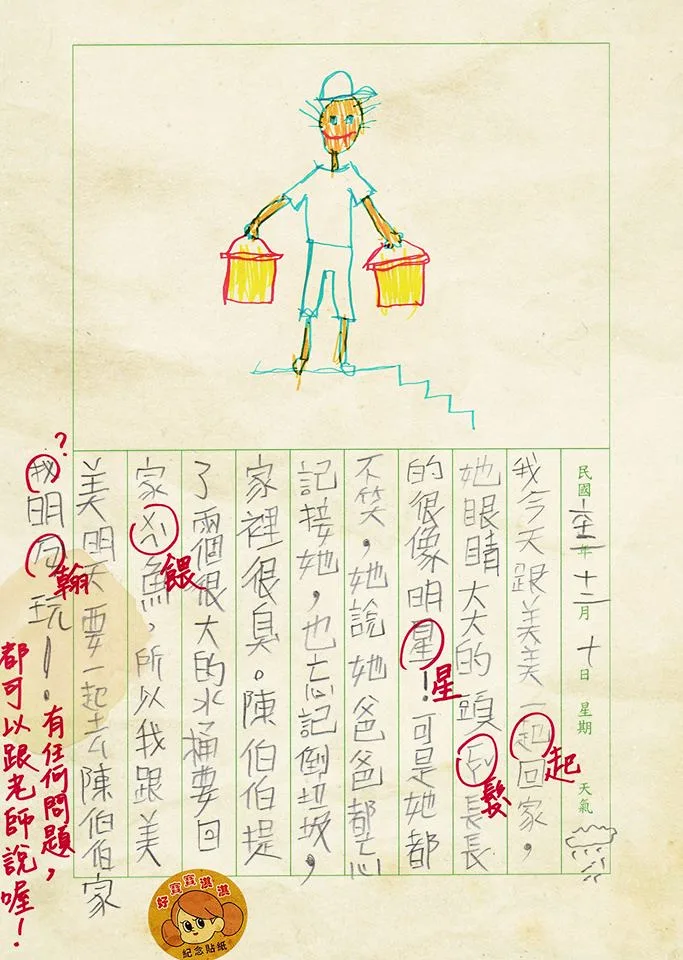 民國 年 十二月 十日 星期 天氣
我今天跟美美一起回家,
起
她眼睛大大的頭 長長
髮
的很像明星!可是她都
星
不笑,她說她爸爸都忘
記接她,也忘記倒垃圾,
家裡很臭。陳伯伯提
了兩個很大的水桶要回
家 魚,所以我跟美
餵
美明天要一起去陳伯伯家
我明 玩!。
?
翰
有任何問題,
都可以跟老師說喔!
好寶寶淇淇
紀念貼紙